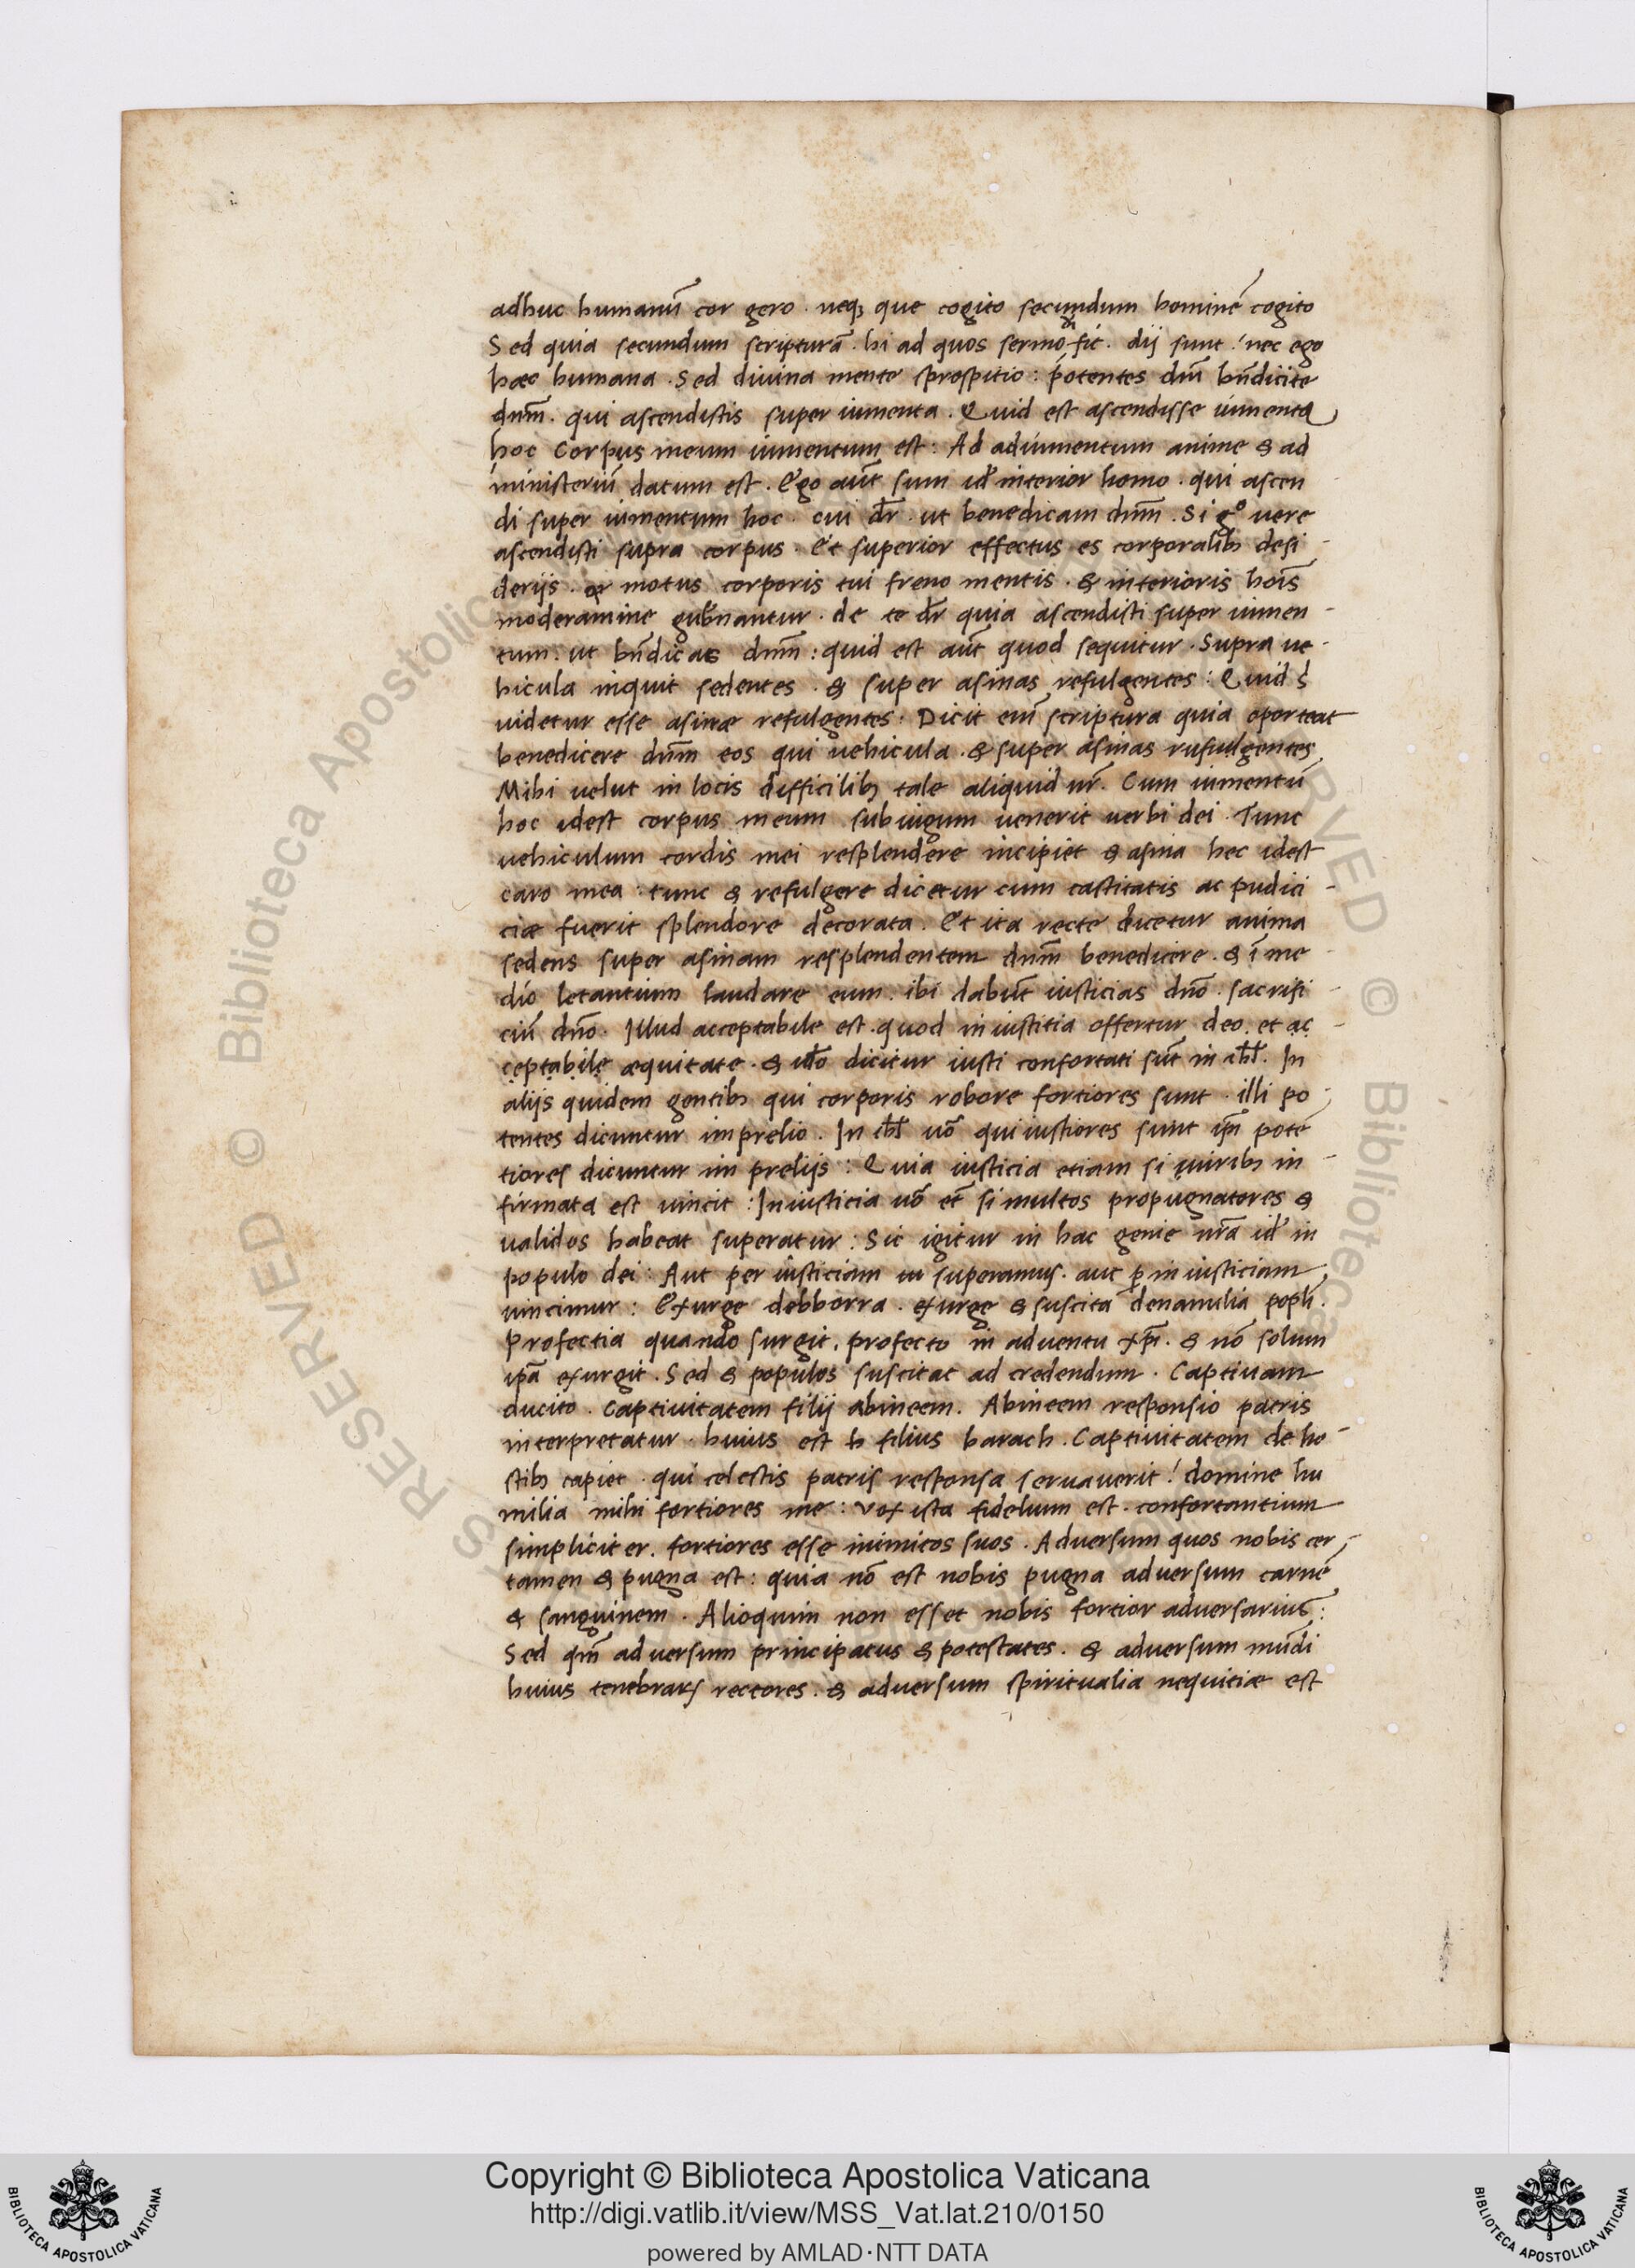 adhuc humanū cor gero . neqꝫ que cogito secundum hominē cogito
Sed quia secundum scripturā . hi ad quos sermo fit . dij sunt ! nec ego
hæc humana . Sed diuina mente : potentes diū bn̄dicite
dnm̄ . qui ascendistis super iumenta . Quid est ascendisse iumenta
hoc Corpus meum iumentum est : Ad adiumentum anime & ad
ministeriū datum est . Ego aūt sum interior homo . qui ascen
di super iumentum hoc . cui dr̄ . ut benedicam dnm̄ . Si gͦ uere
ascendisti supra corpus . Et superior effectus es corporalibꝫ desi -
derijs . motus corporis tui freno mentis . & interioris hoīs
moderamine gub̄nantur . de te dr̄ quia ascendisti super iumen -
tum . ut bn̄dicas dnm̄ : quid est aūt quod sequitur . Supra ue -
hicula inquit sedentes . & super asinas refulgentes : Quid
uidetur esse asinæ refulgentes : Dicit eni̅ scriptura quia oporteat
benedicere dnm̄ eos qui uehicula . & super asinas rufulgentes
Mihi uelut in locis difficilibꝫ tale aliquid ur̄ . Cum iumentū
hoc idest corpus meum subiugum uenerit uerbi dei . Tunc
uehiculum cordis mei resplendere incipiet & asina hec idest
caro mea . tunc & refulgere dicetur cum castitatis ac pudici -
ciæ fuerit splendore decorata . Et ita recte dicetur anima
sedens super asinam resplendentem dnm̄ benedicere . & ī me -
dio letantium laudare eum . ibi dabūt iusticias dnō . sacrifi -
ciū dnō . Illud acceptabile est . quod in iustitia offertur deo . et ac -
ceptabile æquitate . & dicitur iusti confortati sūt in . In
alijs quidem gentibꝫ qui corporis robore fortiores sunt . illi po -
tentes dicuntur in prelio . In uō qui iustiores sunt potē
tiores dicuntur in prelijs : Quia iusticia etiam si uiribꝫ in -
firmata est uincit : Iniusticia uō et̄ si multos propugnatores &
ualidos habeat superatur : Sic igitur in hac genie nr̄a in
populo dei : Aut per iusticiam superamus . aut ꝑ in iusticiam
uincimur : Exurge debborra . exurge & suscita denamilia popl̄i .
Profectia quando surgit . profecto in aduentu xp̄i . & nō solum
ip̄a exurgit . Sed & populos suscitat ad credendum . Captiuam
ducito . Captiuitatem filij abineem . Abineem responsio patris
interpretatur . huius est filius barach . Captiuitatem de ho -
stibꝫ capiet . qui celestis patris responsa seruauerit ! domine hu
milia mihi fortiores me : vox ista fidelium est . confortantium
simpliciter . fortiores esse inimicos suos . Aduersum quos nobis cer -
tamen & pugna est : quia nō est nobis pugna aduersum carnē
& sanguinem . Alioquin non esset nobis fortior aduersarius :
Sed qm̄ aduersum principatus & potestates . & aduersum mūdi
huius tenebraꝝ rectores . & aduersum spiritualia nequitiæ est
Copyright © Biblioteca Apostolica Vaticana
http://digi.vatlib.it/view/MSS_Vat.lat.210/0150
powered by AMLAD·NTT DATA